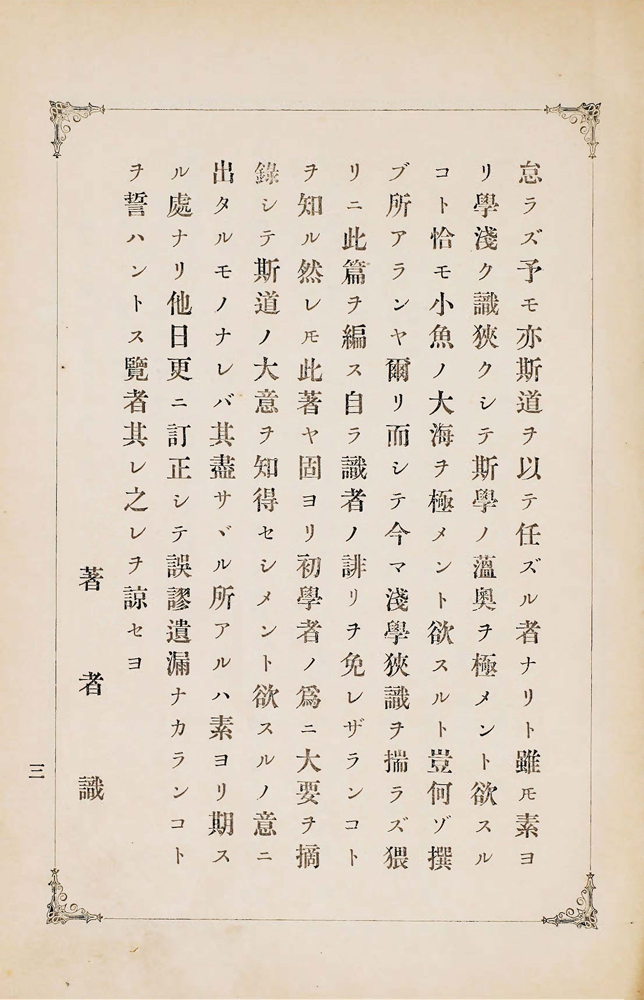 怠ラズ予モ亦斯道ヲ以テ任ズル者ナリト雖𪜈素ヨ
リ學淺ク識狹クシテ斯學ノ薀奥ヲ極メント欲スル
コト恰モ小魚ノ大海ヲ極メント欲スルト豈何ゾ撰
ブ所アランヤ爾リ而シテ今マ淺學狹識ヲ揣ラズ猥
リニ此篇ヲ編ス自ラ識者ノ誹リヲ免レザランコト
ヲ知ル然レ𪜈此著ヤ固ヨリ初學者ノ爲ニ大要ヲ摘
錄シテ斯道ノ大意ヲ知得セシメント欲スルノ意ニ
出タルモノナレバ其盡サヾル所アルハ素ヨリ期ス
ル處ナリ他日更ニ訂正シテ誤謬遺漏ナカランコト
ヲ誓ハントス覽者其レ之レヲ諒セヨ
著者識
三